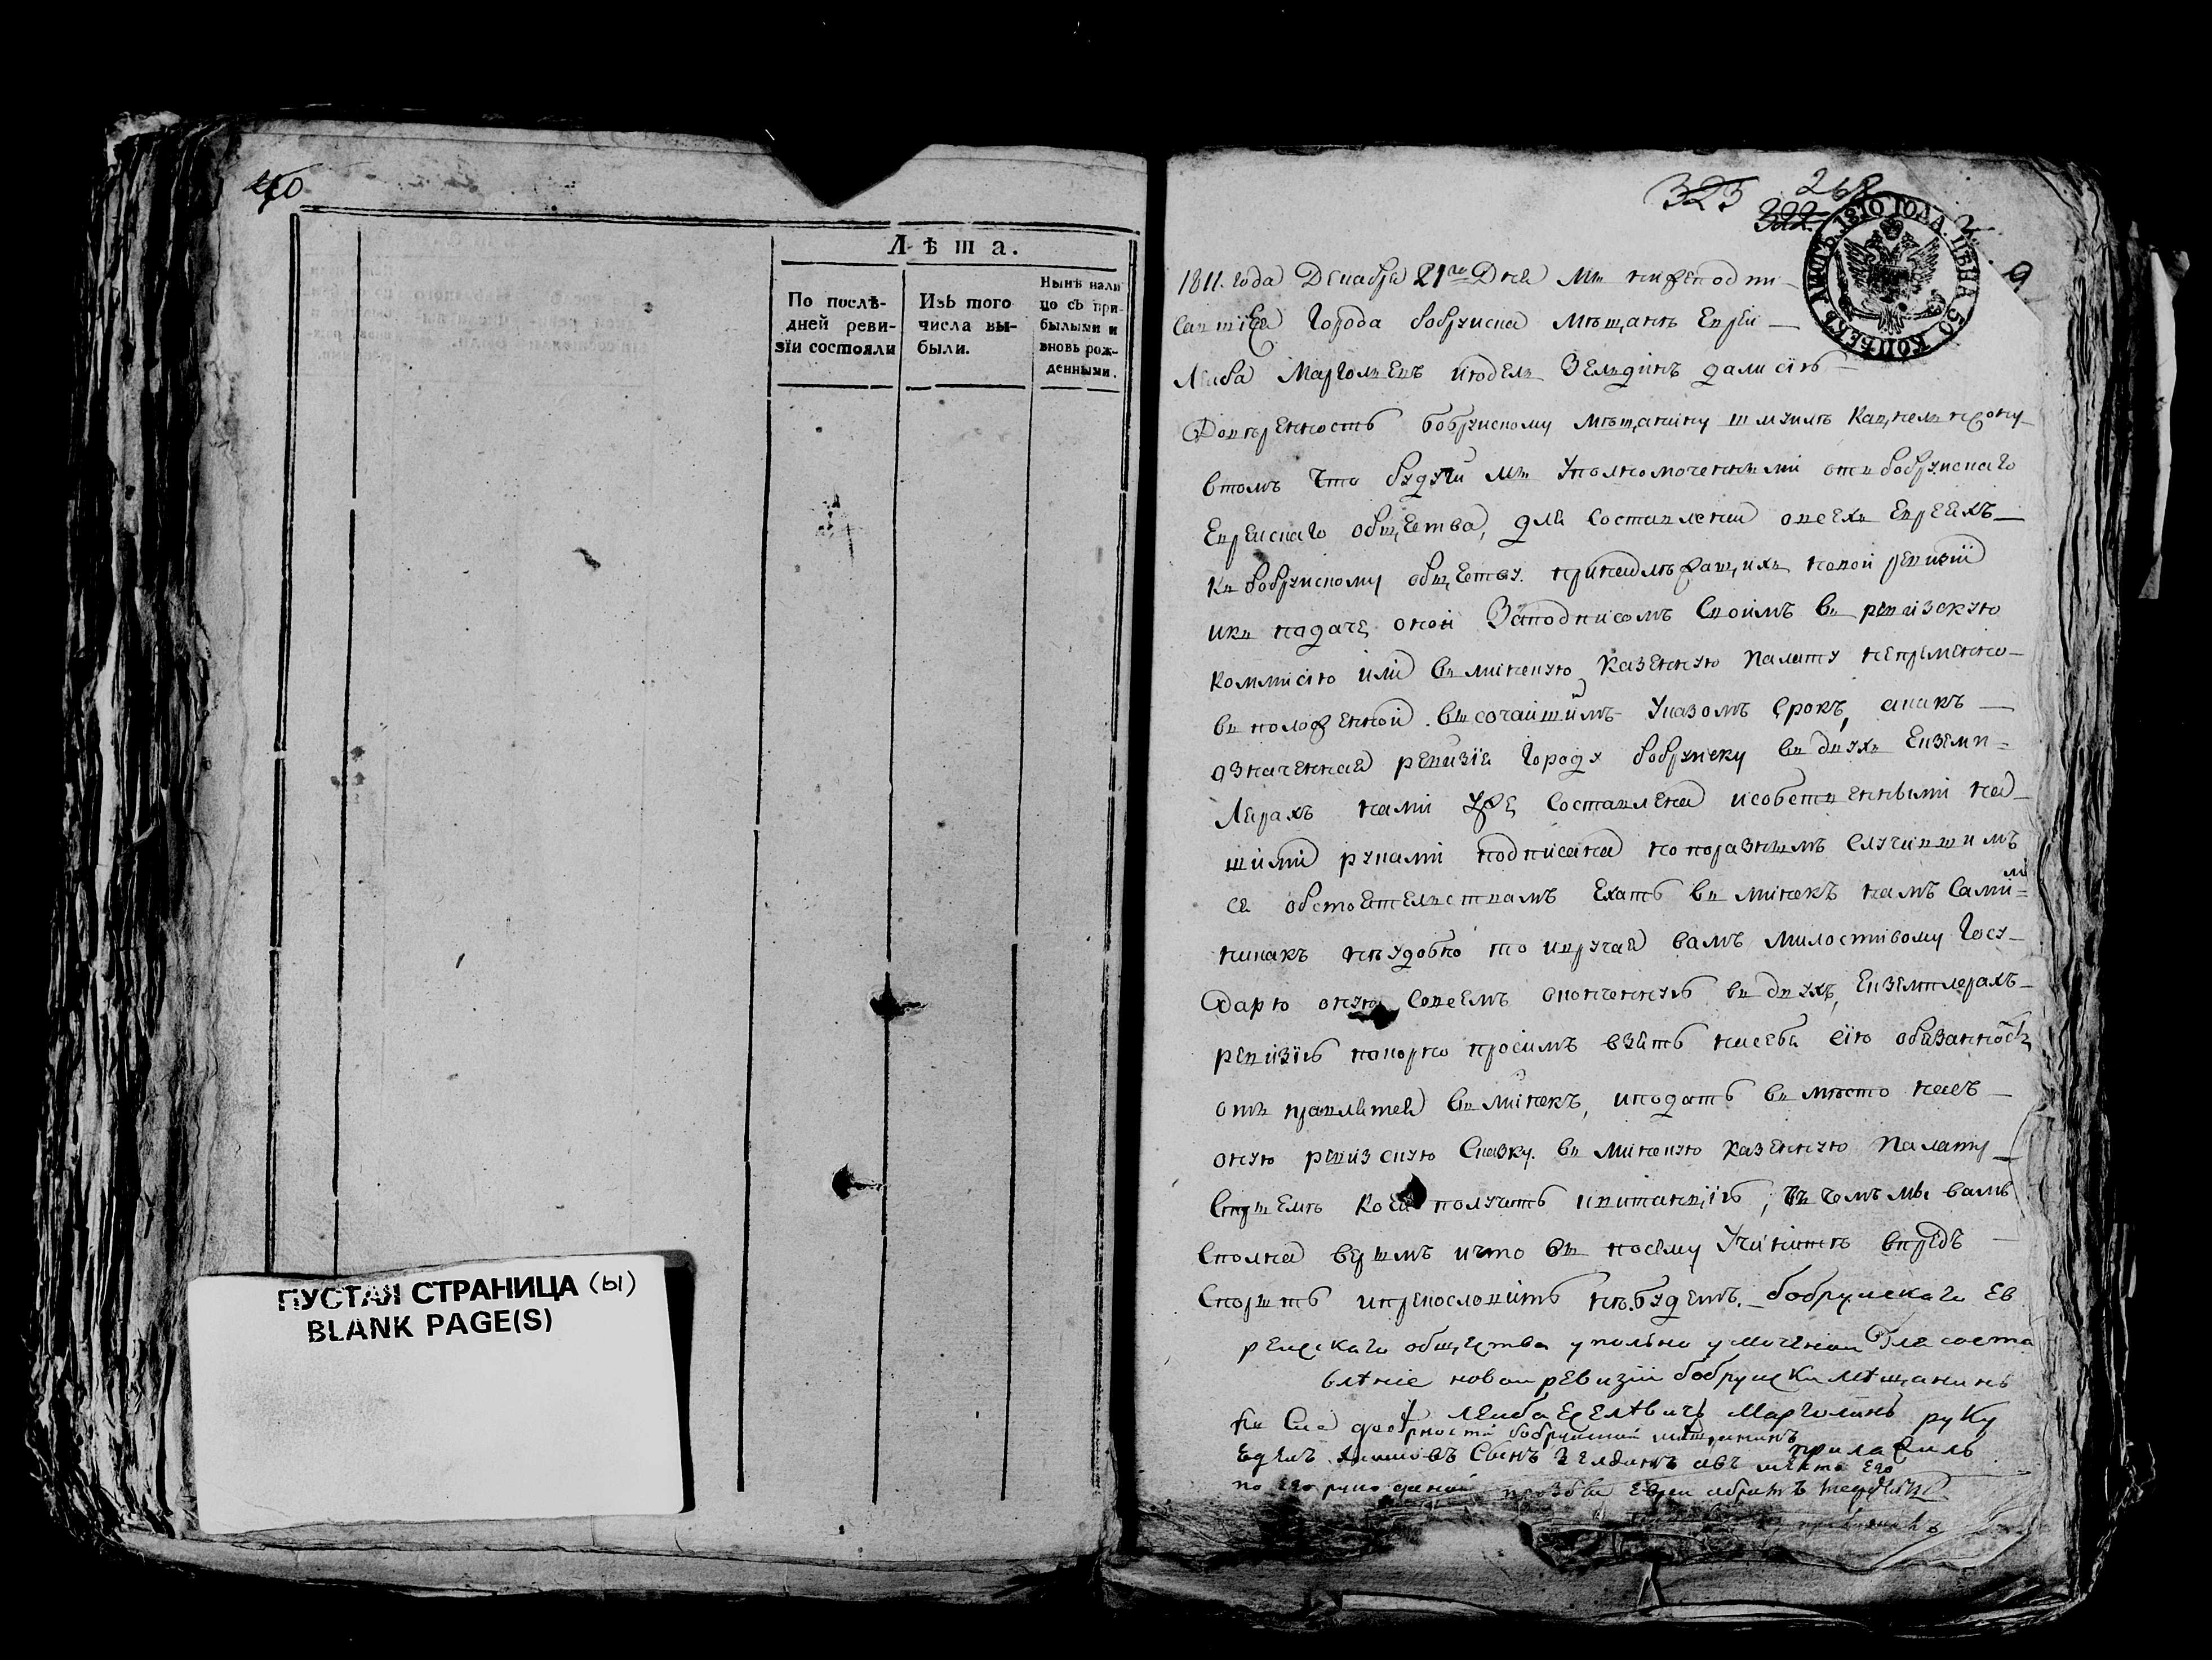 40
Лѣта.
По послѣ-
дней реви-
зїи состояли
Изъ того
числа вы-
были.
Нынѣ нали
цо съ при-
былыми и
вновь рож-
денными.
ПУСТАЯ СТРАНИЦА (ы)
BLANK PAGE(S)
323
268
322
ЛИСТЪ 1810 ГОДА. ЦѢНА 50 КОПѢЕКЪ
1811. года Декабря 21го Дня мы нижеподпи-
савшїеся Города бобруиска мѣщанѣ Евреи
Леиба Марголинъ июдель Зельдинъ дали сїю
Довѣренность бобрускому мѣщанину
втомъ Что будучи мы Уполномоченными отъ бобрускаго
Еврейскаго общества, для составленїя овсехъ Евреяхъ
къ бобрускому обществу принадлѣжащихъ новой ревизїи
икъ подаче оной Заподписомъ Своимъ въ ревизскую
коммисїю или въ минскую казенную палату непременно
въ положенной высочайшимъ Указомъ срокъ, а какъ
означенная ревизїя Городу бобруиску въ двухъ Екземп=
лярахъ нами Уже Составлена исобственными на-
шими руками подписана по поразнымъ случившимъ
ся обстоятельствамъ Ехать въ минскъ намъ Самимъ
никакъ неудобно то вручая вамъ милостивому Госу-
дарю оную Совсемъ оконченную въ двухъ Екземплярахъ
ревизїю покорно просимъ взять насебя сїю обязанность
отправлятся въ минскъ, иподать въ место насъ
оную ревизскую Сказку въ минскую казенную палату
получить квитанцїю; въ чемъ мы вамъ
Сполна веримъ ичто вы посему Учините впредь
Спорить ипрекословить небудемъ. бобруискаго Ев
рейскаго общества упольноумоченои Для соста
влѣнїе новои ревизїи бобруиски мѣщанинъ
Леиба Марголинъ руку
приложилъ
Сынъ Зелдинъ